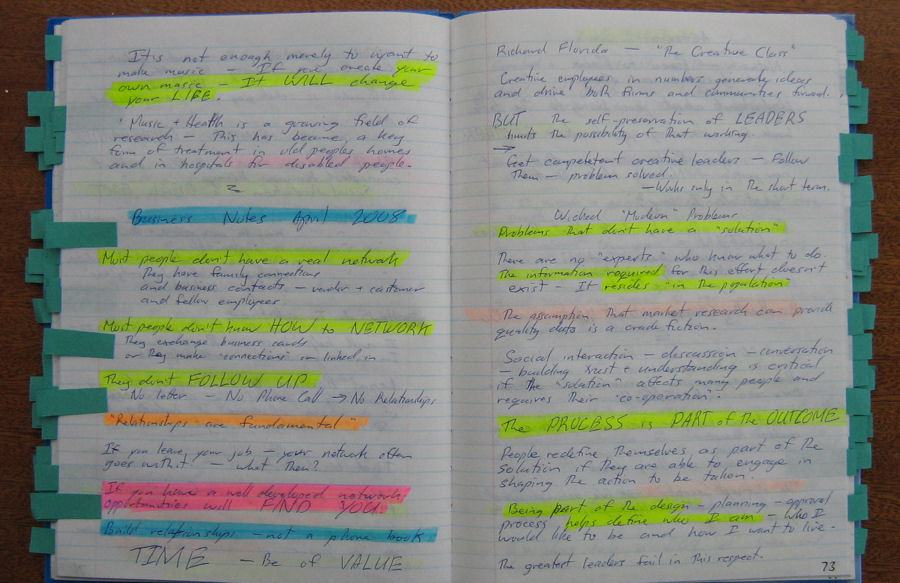 It is not enough merely to want to
make music - If you create your
own music - It WILL change
your LIFE.
"Music + Health is a growing field of
research - This has become a key
form of treatment in old peoples homes
and in hospitals for disabled people.
Business Notes April 2008
Most people don't have a real network
They have family connections
and business contacts - vendor + customer
and fellow employees
Most people don't know HOW to NETWORK
They exchange business cards
or they make "connections" on linked in
They don't FOLLOW UP
No letter - No Phone Call → No Relationships
"Relationships are fundamental"
If you leave your job - your network often
goes with it! - what then?
If you have a well developed network
opportunities will FIND YOU.
Build relationships - not a phone book
TIME - Be of VALUE
Richard Florida - "The Creative Class"
Creative employees in numbers generate ideas
and drive both firms and communities forward.
BUT the self-preservation of LEADERS
limits the possibility of that working.
→
Get competent creative leaders - Follow
Them - problem solved.
- Works only in the short term.
Wicked "Modern" Problems
Problems that don't have a "solution"
There are no "experts" who know what to do.
The information required for this effort doesn't
exist - It resides "in the population"
The assumption that market research can provide
quality data is a crude fiction.
Social interaction - discussion - conversation
- building trust + understanding is critical
if the "solution" affects many people and
requires their "co-operation".
The PROCESS is PART of the OUTCOME
People redefine themselves as part of the
solution if they are able to engage in
shaping the action to be taken.
Being part of the design - planning - approval
process helps define who I am - who I
would like to be and how I want to live.
The greatest leaders fail in this respect.
73